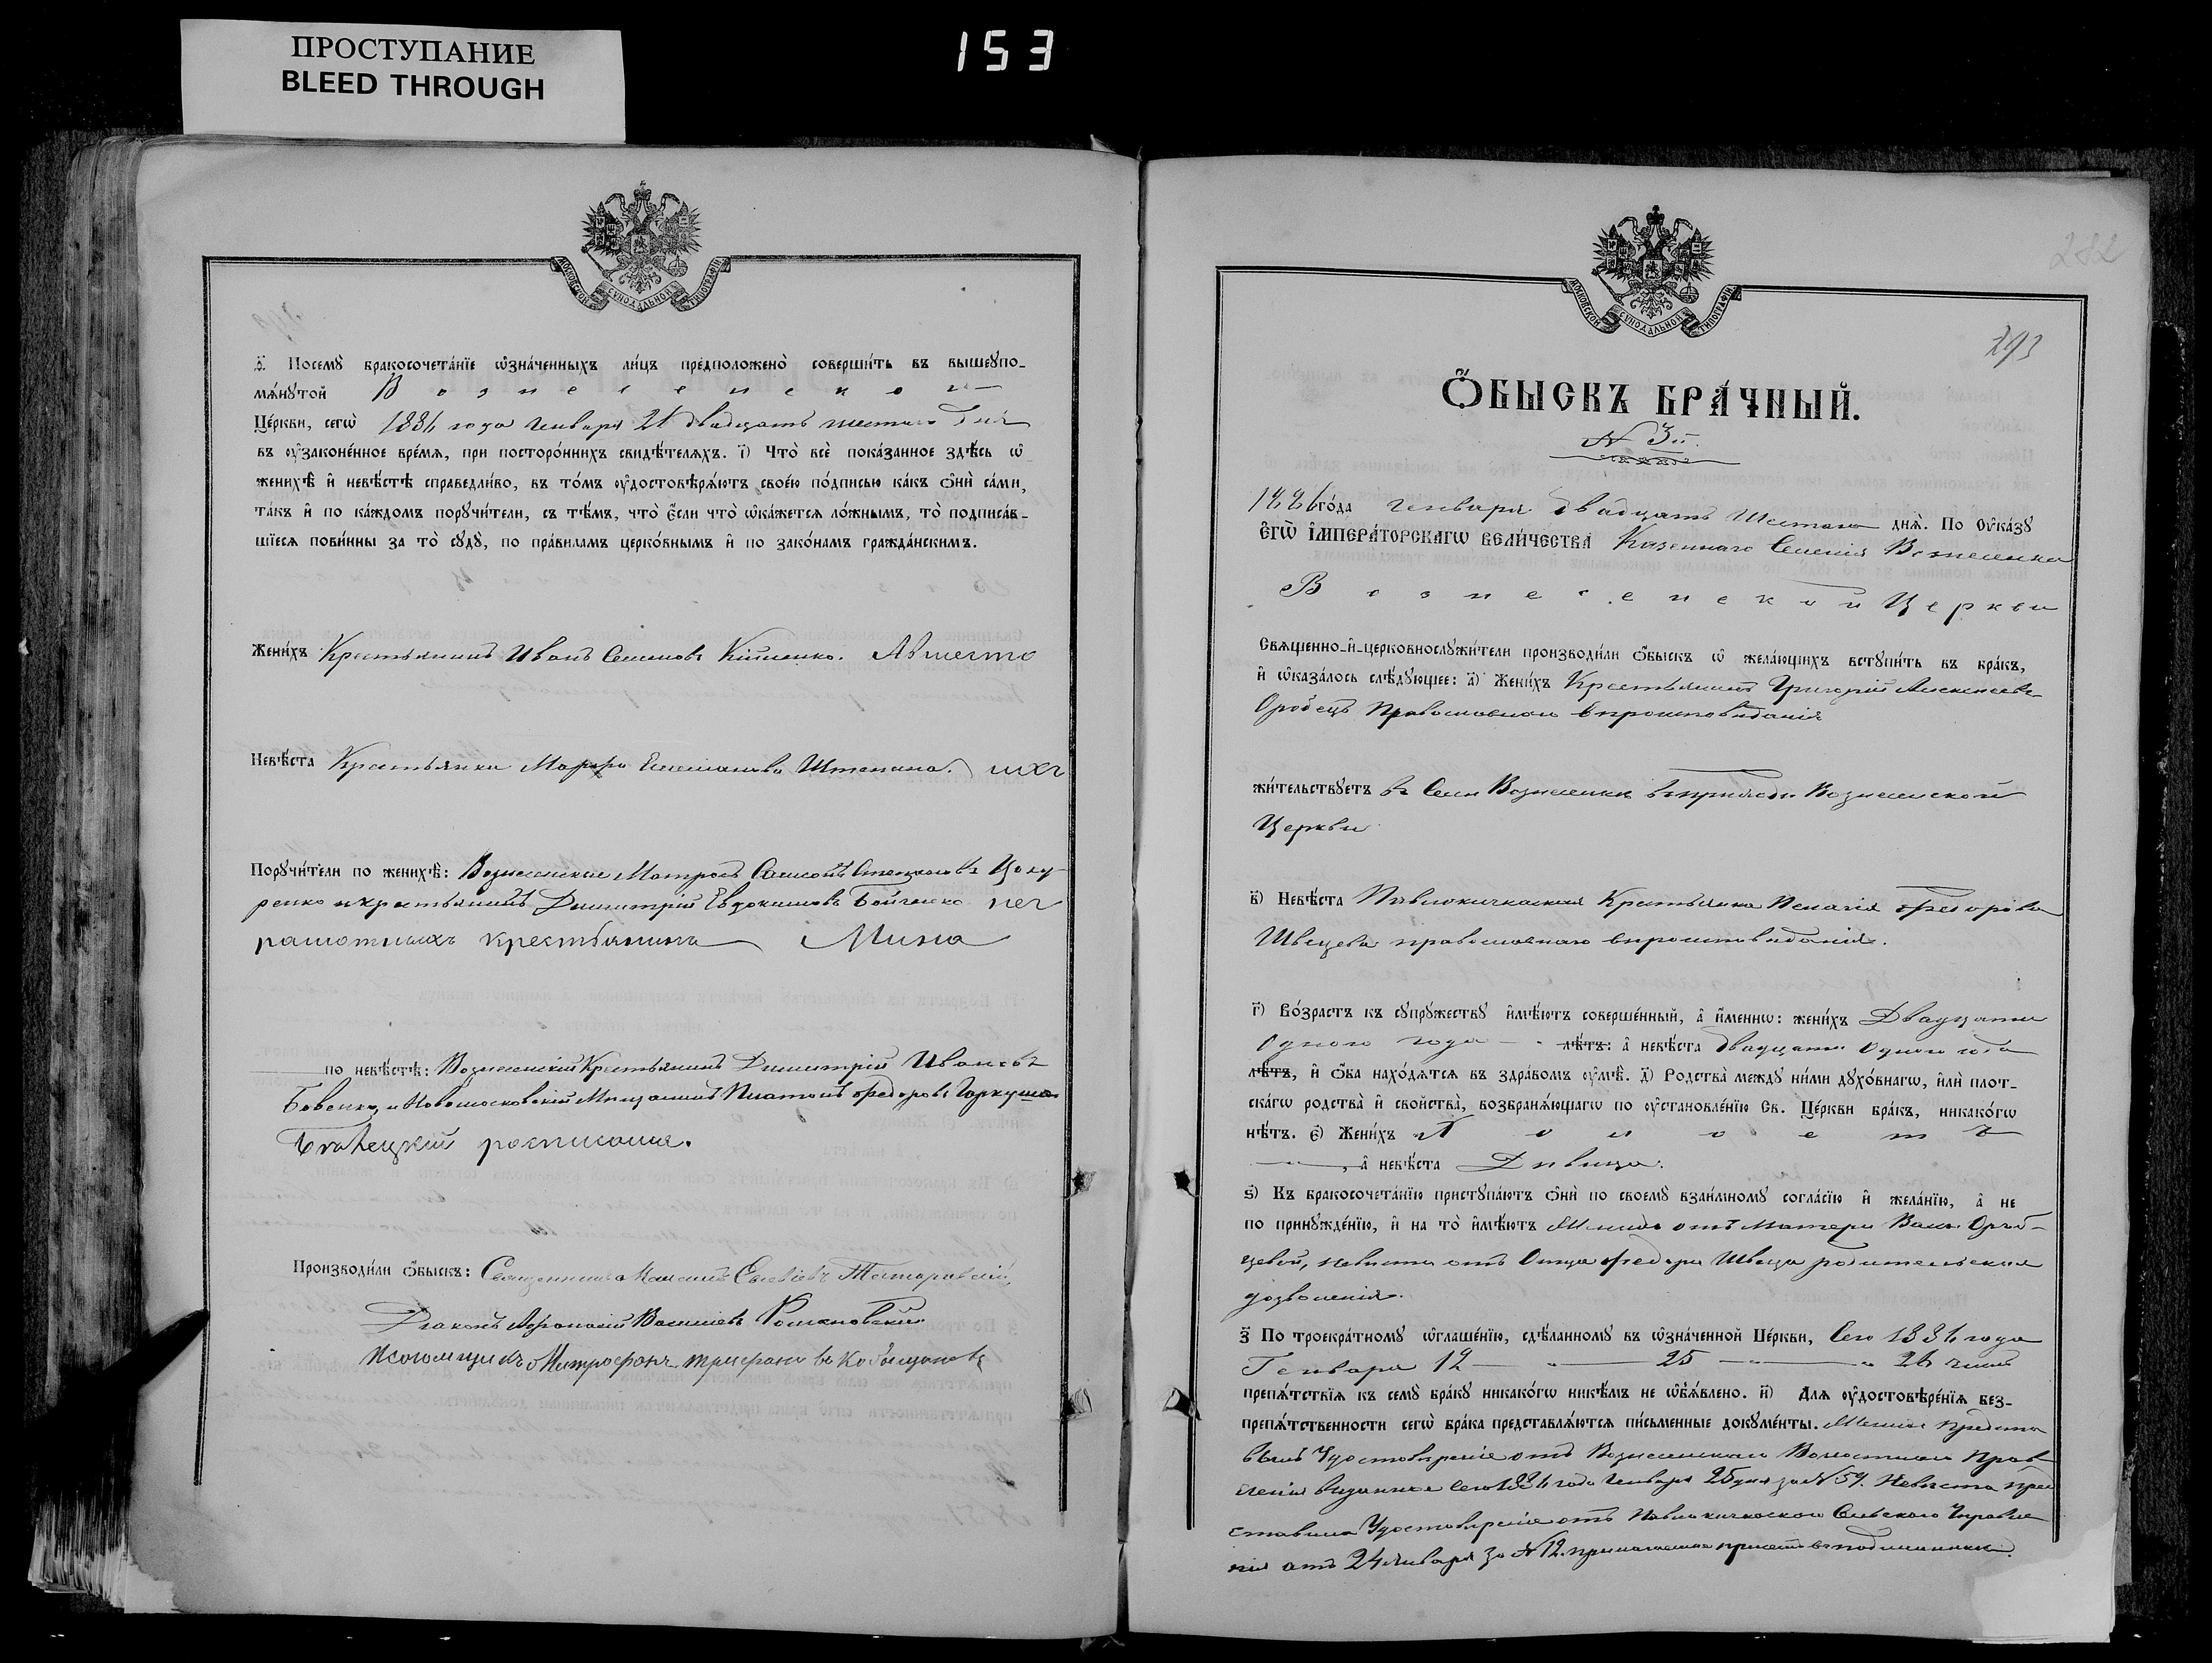 ПРОСТУПАНИЕ
BLEED THROUGH
153
МОСКОВСКОЙ СѴНОДАЛЬНОЙ ТИПОГРАФІИ
Посемꙋ̀ бракосочета́нїе ѡ҆зна́ченныхъ ли́цъ предположено̀ соверши́ть въ вышеꙋпо-
мѧ́нꙋтой Вознесенской
Це́ркви, сегѡ̀ 1886 года Генваря 26 двадцать шестаго дня
въ ᲂу҆законе́нное вре́мѧ, при посторо́ннихъ свидѣ́телѧхъ. і҃) Что̀ всѐ пока́занное здѣ́сь ѡ҆
женихѣ̀ и҆ невѣ́стѣ справедли́во, въ то́мъ ᲂу҆достовѣрѧ́ютъ свое́ю по́дписью ка́къ ѻ҆нѝ са́ми,
та́къ и҆ по ка́ждомъ порꙋчи́тели, съ тѣ́мъ, что̀ є҆́сли что̀ ѡ҆ка́жетсѧ ло́жнымъ, то̀ подписа́в-
шїесѧ пови́нны за то̀ сꙋдꙋ̀, по пра́виламъ церко́внымъ и҆ по зако́намъ гражда́нскимъ.
Жени́хъ Крестьянинъ Иванъ Семеновъ Вмѣсто
Невѣ́ста Крестьянка Марфа ихъ
Порꙋчи́тели по женихѣ̀: Вознесенскіе Матросъ Самсонъ Степановъ Цоку-
ренко и крестьянинъ Димитрій Евдокимовъ Бойченко нег
рамотныхъ крестьянина Мина
по невѣ́стѣ: Вознесенскій Крестьянинъ Димитрій Ивановъ
Бовенко и Новомосковскій Мѣщанинъ Платонъ Федоровъ Гаркуша
росписался.
Производи́ли ѻ҆́быскъ: Священникъ Максимъ
Діаконъ Афанасій Васильевъ Романовскій
Псаломщикъ Митрофанъ
282
293
МОСКОВСКОЙ СѴНОДАЛЬНОЙ ТИПОГРАФІИ
Ѻ҆́БЫСКЪ БРА́ЧНЫЙ.
№ 3й.
1886 го́да Генваря двадцать Шестаго днѧ̀. По ᲂу҆ка́зꙋ
Є҆ГѠ̀ І҆МПЕРА́ТОРСКАГѠ ВЕЛИ́ЧЕСТВА Казеннаго Селенія Вознесенка
Вознесенской Церкви
Свѧще́нно-и҆-церковнослꙋжи́тели производи́ли ѻ҆́быскъ ѡ҆ жела́ющихъ встꙋпи́ть въ бра́къ,
и҆ ѡ҆каза́лось слѣ́дꙋющее: а҃) Жени́хъ Крестьянинъ Григорій Алексеевъ
Оробецъ Православнаго вѣроисповѣданія
жи́тельствꙋетъ въ Селѣ Вознесенкѣ въ приходѣ Вознесенской
Церкви
в҃) Невѣ́ста Павлокичкаская Крестьянка Пелагія Федорова
Швецева православнаго вѣроисповѣданія.
г҃) Во́зрастъ къ сꙋпрꙋ́жествꙋ и҆мѣ́ютъ соверше́нный, а҆ и҆́меннѡ: жени́хъ Двадцати
Одного года лѣ́тъ: а҆ невѣ́ста двадцати Одного года
лѣ́тъ, и҆ ѻ҆́ба нахо́дѧтсѧ въ здра́вомъ ᲂу҆мѣ̀. д҃) Родства̀ междꙋ̀ ни́ми дꙋхо́внагѡ, и҆лѝ плот-
ска́гѡ родства̀ и҆ свойства̀, возбранѧ́ющагѡ по ᲂу҆становле́нїю Св. Це́ркви бра́къ, никако́гѡ
нѣ́тъ. є҃) Жени́хъ Холостъ
, а҆ невѣ́ста Дѣвица.
ѕ҃) Къ бракосочета́нїю пристꙋпа́ютъ ѻ҆нѝ по своемꙋ̀ взаи́мномꙋ согла́сїю и҆ жела́нїю, а҆ не
по принꙋжде́нїю, и҆ на то̀ и҆мѣ́ютъ Женихъ отъ Матери Ороб-
цевой, невѣста отъ Отца Федора Швеца родительскія
дозволенія.
з҃) По троекра́тномꙋ ѡ҆глаше́нїю, сдѣ́ланномꙋ въ ѡ҆зна́ченной Це́ркви, Сего 1886 года
Генваря 12 — 25 — 26 чиселъ
препѧ́тствїѧ къ семꙋ̀ бра́кꙋ никако́гѡ никѣ́мъ не ѡ҆б̾ѧ́влено. и҃) Длѧ ᲂу҆достовѣре́нїѧ без-
препѧ́тственности сегѡ̀ бра́ка представлѧ́ютсѧ пи́сьменные докꙋме́нты. Женихъ предста
вилъ Удостовѣреніе отъ Вознесенскаго Волостнаго Прав
ленія выданное сего 1886 года Генваря 25 дня за № 59. Невѣста пред
ставила Удостовѣреніе отъ Павлокичкаскаго Сельскаго Управле
нія отъ 24 Января за № 12. прилагаемые при семъ въ подлинникѣ.